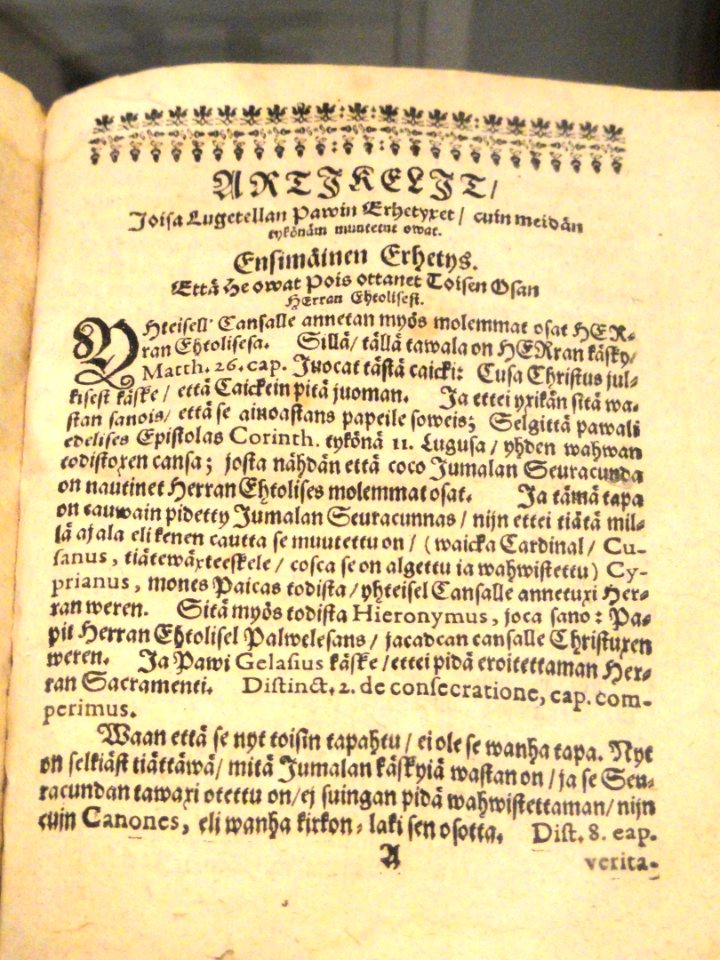 ARTIKELIT/
Joisa Lugetellan Pawin Erhetyxet/ cuin meidän
tykönäm muutetut owat.
Ensimäinen Erhetys.
Että he owat pois ottanet Toisen Osan
HErran Ehtolisest.
YHteisell Cansalle annetan myös molemmat osat HER-
ran Ehtolisesa. Sillä/ tällä tawala on HERran käsky/
Matth. 26. cap. Juocat tästä caicki: Cusa Christus jul-
kisest käske/ että Caickein pitä juoman. Ja ettei yxikän sitä wa-
stan sanois/ että se ainoastans papeile soweis; Selgittä pawali
edelises Epistolas Corinth. tykönä 11. Lugusa/ yhden wahwan
todistoxen cansa; josta nähdän että coco Jumalan Seuracunda
on nautinet Herran Ehtolises molemmat osat. Ja tämä tapa
on cauwain pidetty Jumalan Seuracunnas/ nijn ettei tiätä mil-
lä ajala eli kenen cautta se muutettu on/ (waicka Cardinal/ Cu-
sanus, tiätewäxteeskele/ cosca se on algettu ia wahwistettu) Cy-
prianus, mones Paicas todista/ yhteisel Cansalle annetuxi Her-
ran weren. Sitä myös todista Hieronymus, joca sano: Pa-
pit Herran Ehtolisel Palwelesans/ jacadcan cansalle Christuxen
weren. Ja Pawi Gelasius käske/ ettei pidä eroitettaman Her-
ran Sacramenti. Distinct. 2. de consecratione, cap. com-
perimus.
Waan että se nyt toisin tapahtu/ ei ole se wanha tapa. Nyt
on selkiäst tiättäwä/ mitä Jumalan käskyiä wastan on/ ja se Seu-
racundan tawaxi otettu on/ ej suingan pidä wahwistettaman/ nijn
cuin Canones, eli wanha kirkon-laki sen osotta. Dist. 8. eap.
A
verita-